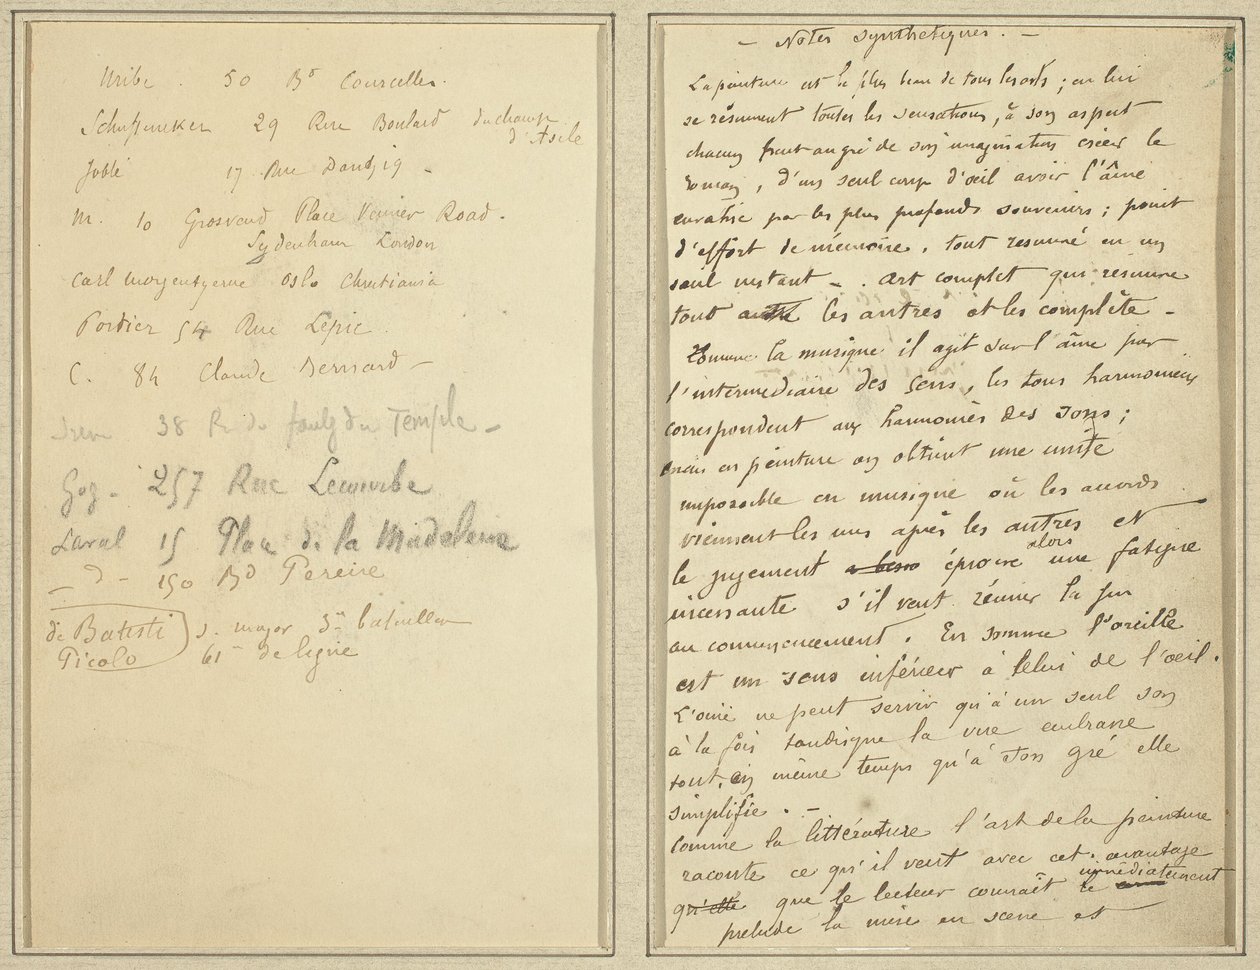 Uribe 50 Bd Courcelles.
Schuffeneker 29 Rue Boulard du champ
d'Asile
Jobbé 17 Rue Dantzig -
M. 10 Grosvenor Place Venner Road.
Sydenham London
Carl Morgenstjerne Oslo Christiania
Portier 54 Rue Lepic
C. 84 Claude Bernard -
38 R. du faubg du Temple -
Gog - 257 Rue Lecourbe
Laval 15 Place de la Madeleine
- d - 150 Bd Pereire
de Batisti S. major 3me bataillon
Picolo 61me de ligne
- Notes synthétiques. -
La peinture est le plus beau de tous les arts ; en lui
se résument toutes les sensations, à son aspect
chacun peut au gré de son imagination créer le
roman, d'un seul coup d'oeil avoir l'âme
envahie par les plus profonds souvenirs ; point
d'effort de mémoire, tout résumé en un
seul instant - . Art complet qui résume
tout les autres et les complète -
Comme la musique il agit sur l'âme par
l'intermédiaire des sens, les tons harmonieux
correspondent aux harmonies des sons ;
mais en peinture on obtient une unité
impossible en musique où les accords
viennent les uns après les autres et
le jugement éprouve alors une fatigue
incessante s'il veut réunir la fin
au commencement. En somme l'oreille
est un sens inférieur à celui de l'oeil.
L'ouïe ne peut servir qu'à un seul son
à la fois tandisque la vue embrasse
tout, en même temps qu'à son gré elle
simplifie. -
Comme la littérature l'art de la peinture
raconte ce qu'il veut avec cet avantage
qu'elle que le lecteur connaît immédiatement le
prélude la mise en scène et